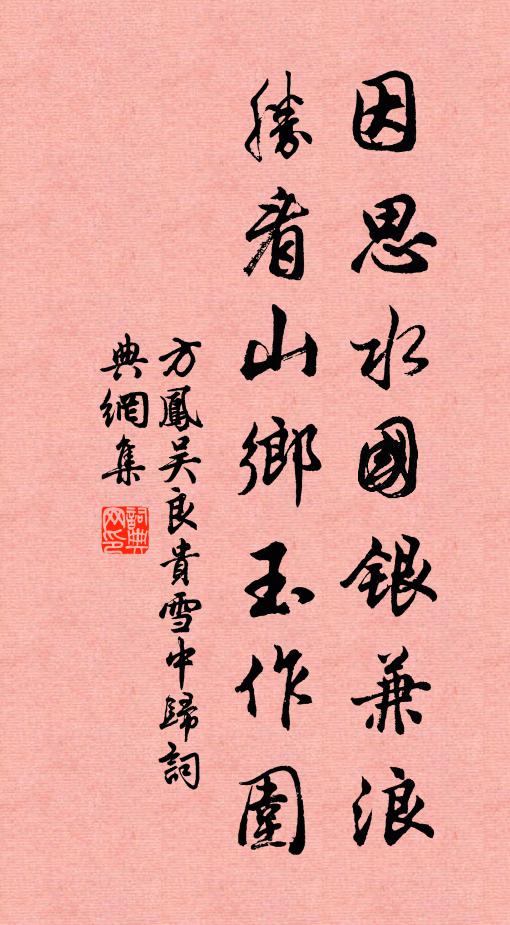 因思水國銀兼浪
勝看山鄉玉作圍
方鳳吴良貴雪中歸詞
典網集
詞典
网印